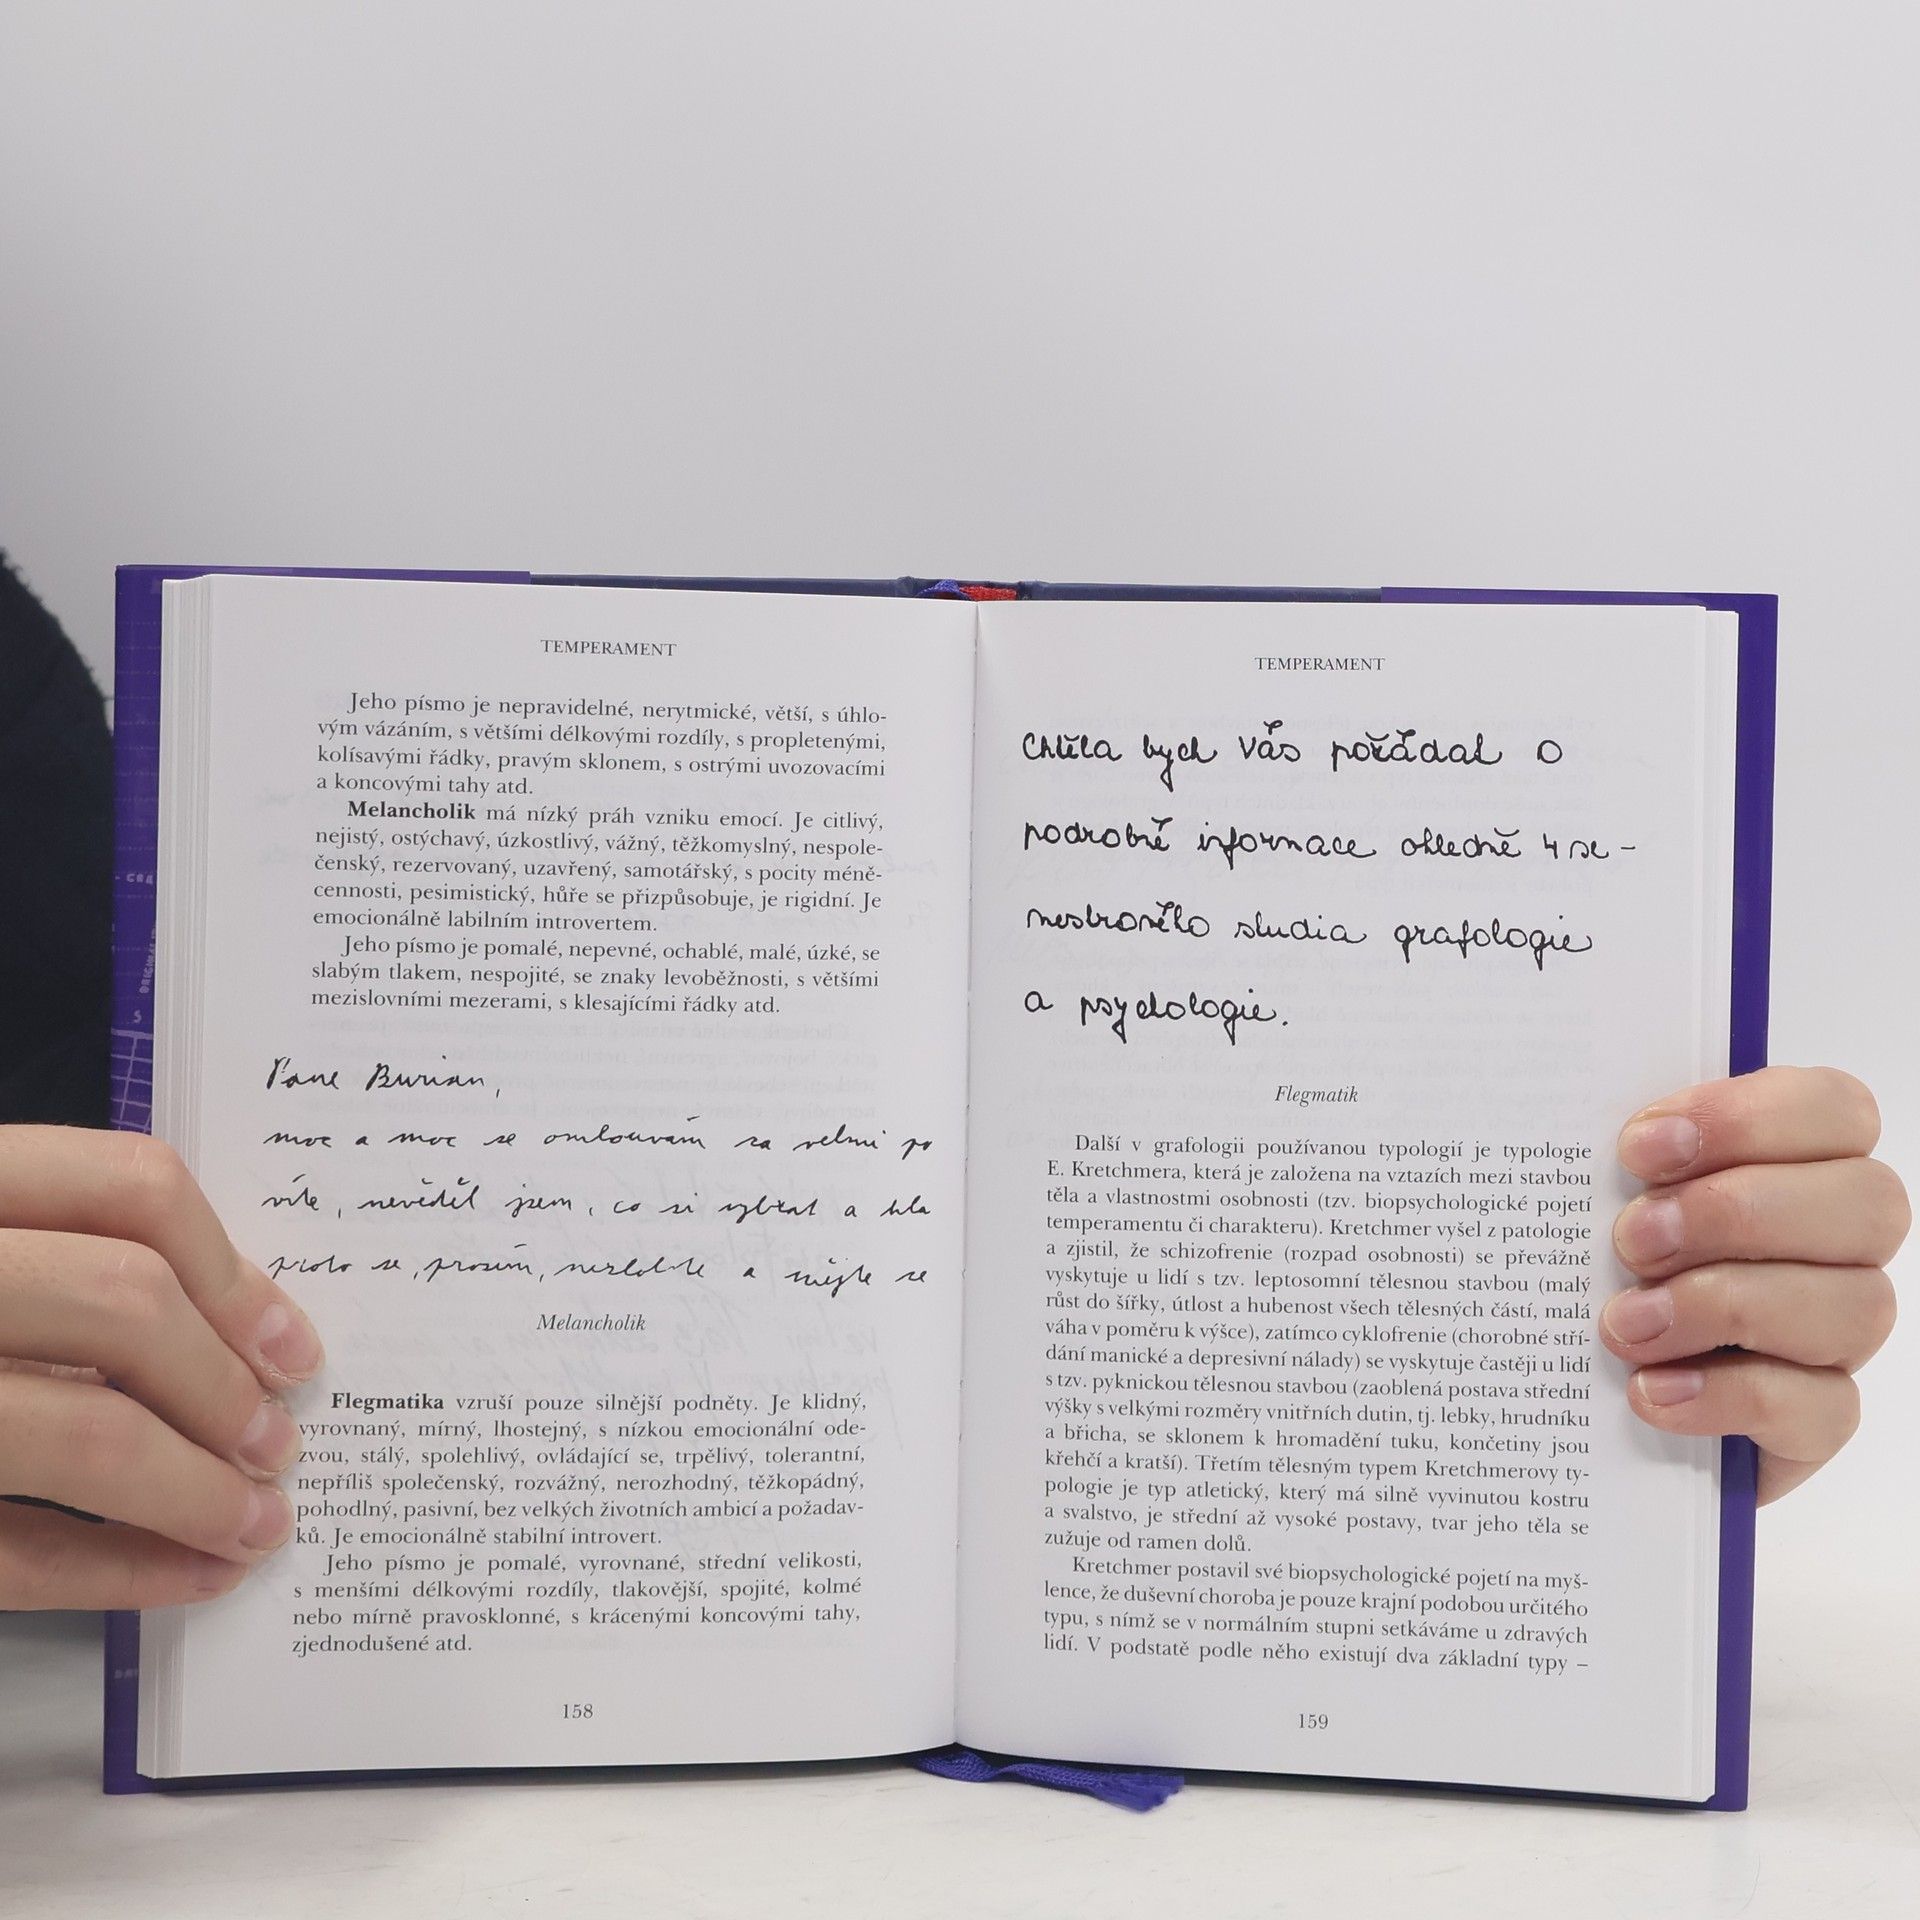 TEMPERAMENT
Jeho písmo je nepravidelné, nerytmické, větší, s úhlo-
vým vázáním, s většími délkovými rozdíly, s propletenými,
kolísavými řádky, pravým sklonem, s ostrými uvozovacími
a koncovými tahy atd.
Melancholik má nízký práh vzniku emocí. Je citlivý,
nejistý, ostýchavý, úzkostlivý, vážný, těžkomyslný, nespole-
čenský, rezervovaný, uzavřený, samotářský, s pocity méně-
cennosti, pesimistický, hůře se přizpůsobuje, je rigidní. Je
emocionálně labilním introvertem.
Jeho písmo je pomalé, nepevné, ochablé, malé, úzké, se
slabým tlakem, nespojité, se znaky levoběžnosti, s většími
mezislovními mezerami, s klesajícími řádky atd.
Pane Burian,
moc a moc se omlouvám za velmi po
víte, nevěděl jsem, co si vybrat a hla
proto se, prosím, nezlobte a mějte se
Melancholik
Flegmatika vzruší pouze silnější podněty. Je klidný,
vyrovnaný, mírný, lhostejný, s nízkou emocionální ode-
zvou, stálý, spolehlivý, ovládající se, trpělivý, tolerantní,
nepříliš společenský, rozvážný, nerozhodný, těžkopádný,
pohodlný, pasivní, bez velkých životních ambicí a požadav-
ků. Je emocionálně stabilní introvert.
Jeho písmo je pomalé, vyrovnané, střední velikosti,
s menšími délkovými rozdíly, tlakovější, spojité, kolmé
nebo mírně pravosklonné, s krácenými koncovými tahy,
zjednodušené atd.
158
TEMPERAMENT
Chtěla bych Vás požádat o
podrobné informace ohledně 4 se-
mestrového studia grafologie
a psychologie.
Flegmatik
Další v grafologii používanou typologií je typologie
E. Kretchmera, která je založena na vztazích mezi stavbou
těla a vlastnostmi osobnosti (tzv. biopsychologické pojetí
temperamentu či charakteru). Kretchmer vyšel z patologie
a zjistil, že schizofrenie (rozpad osobnosti) se převážně
vyskytuje u lidí s tzv. leptosomní tělesnou stavbou (malý
růst do šířky, útlost a hubenost všech tělesných částí, malá
váha v poměru k výšce), zatímco cyklofrenie (chorobné stří-
dání manické a depresivní nálady) se vyskytuje častěji u lidí
s tzv. pyknickou tělesnou stavbou (zaoblená postava střední
výšky s velkými rozměry vnitřních dutin, tj. lebky, hrudníku
a břicha, se sklonem k hromadění tuku, končetiny jsou
křehčí a kratší). Třetím tělesným typem Kretchmerovy ty-
pologie je typ atletický, který má silně vyvinutou kostru
a svalstvo, je střední až vysoké postavy, tvar jeho těla se
zužuje od ramen dolů.
Kretchmer postavil své biopsychologické pojetí na myš-
lence, že duševní choroba je pouze krajní podobou určitého
typu, s nímž se v normálním stupni setkáváme u zdravých
lidí. V podstatě podle něho existují dva základní typy –
159